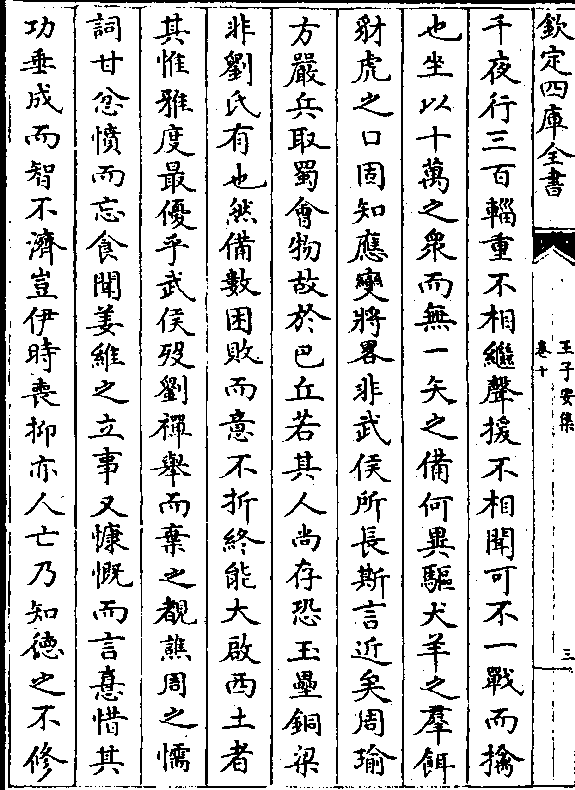 欽定四庫全書
王子安集
卷十
三
千夜行三百輜重不相繼聲援不相聞可不一戰而擒
也坐以十萬之衆而無一矢之備何異驅犬羊之羣餌
豺虎之口固知應變將畧非武侯所長斯言近矣周瑜
方嚴兵取蜀會物故於巴丘若其人尚存恐玉壘銅梁
非劉氏有也然備數困敗而意不折終能大啟西土者
其惟雅度最優乎武侯歿劉禪舉而棄之覩譙周之懦
詞甘忿憤而忘食聞姜維之立事又慷慨而言憙惜其
功垂成而智不濟豈伊時喪抑亦人亡乃知德之不修